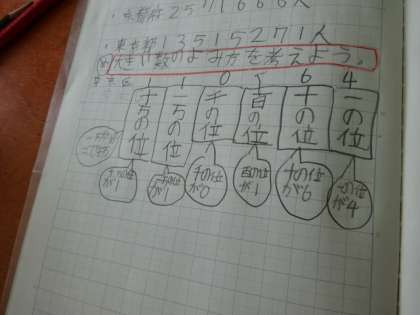 ・東京都13515271人
め 大きい数のよみ方を考えよう。
1 1 0 1 6 4
十万の位
一万の位
千の位
百の位
十の位
一の位
十万の位が1
一万の位が1
千の位が0
百の位が1
十の位が6
一の位が4